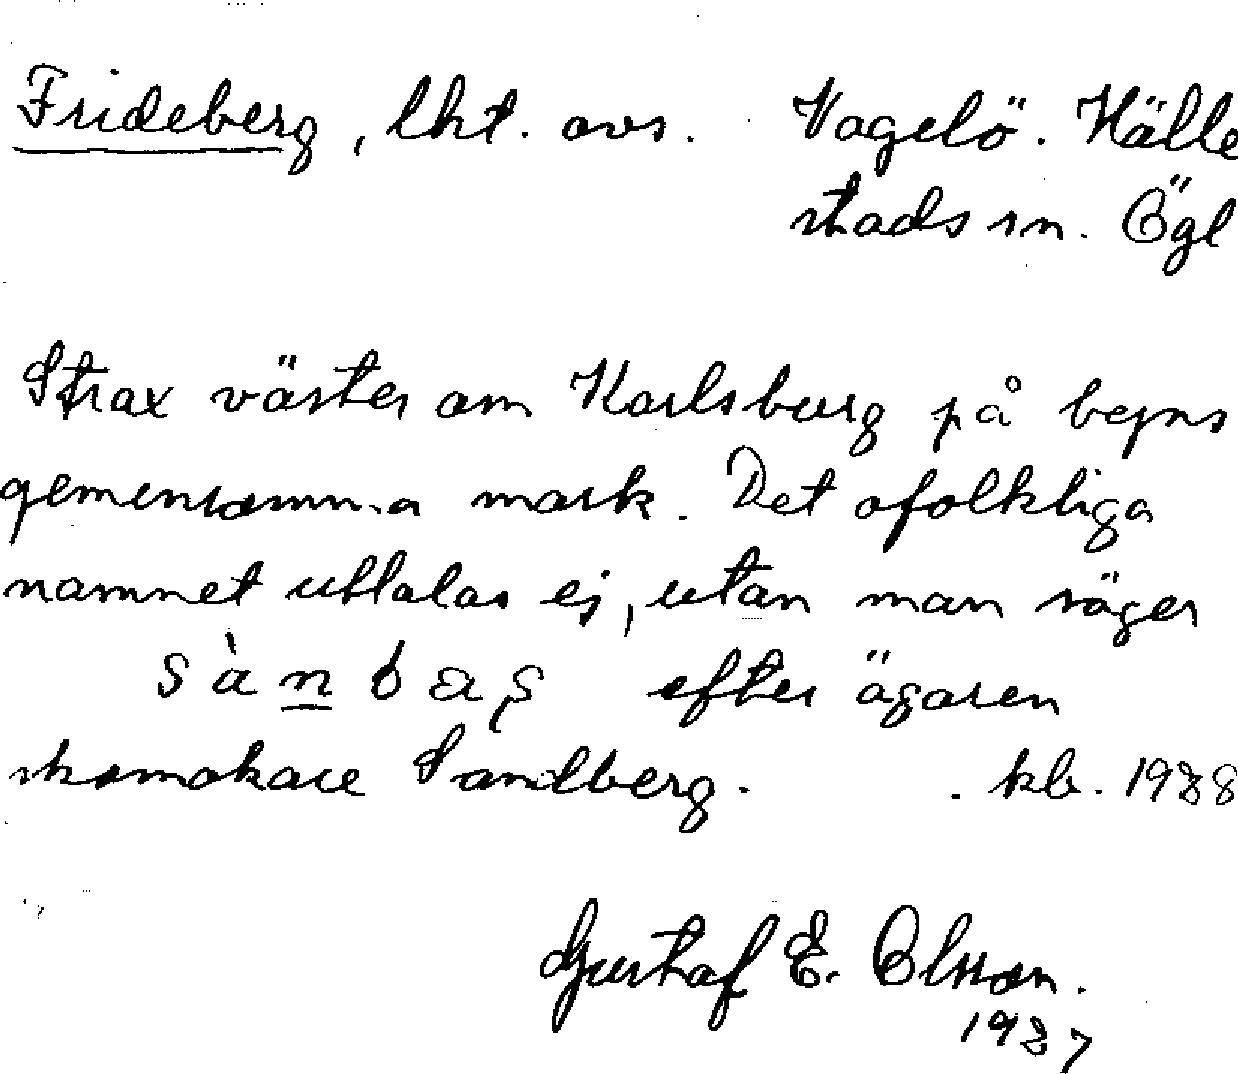 Frideberg, lht. avs. Vagelö. Hälle
stads sn. Ögl
Strax väster om Karlsburg på byns
gemensamma mark. Det ofolkliga
namnet uttalas ej, utan man säger
efter ägaren
skomakare Sandberg. kb. 1938
Gustaf E. Olsson.
1937